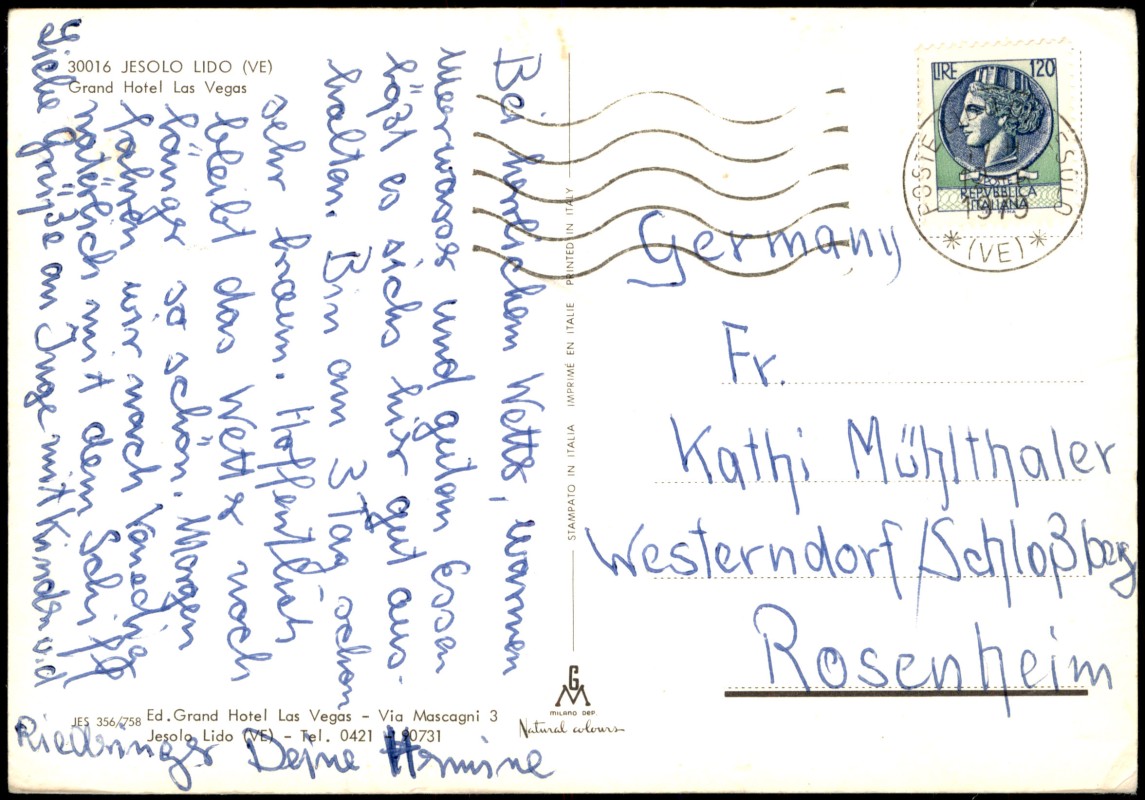 30016 JESOLO LIDO (VE)
Grand Hotel Las Vegas
Bei herrlichem Wetter, warmen
Meerwasser und gutem Essen
läßt es sichs hier gut aus-
halten. Bin am 3 Tag schon
sehr braun. Hoffentlich
bleibt das Wetter noch
länger so schön. Morgen
fahren wir nach Venedig
natürlich mit dem Schiff
Liebe Grüße an Inge mit Kinder u. d
Riedringer Deine Hermine
JES 356/758
Ed. Grand Hotel Las Vegas - Via Mascagni 3
Jesolo Lido (VE) - Tel. 0421 - 90731
STAMPATO IN ITALIA IMPRIMÉ EN ITALIE PRINTED IN ITALY
GM
MILANO DEP.
Natural colours
LIRE 120
POSTE
REPVBBLICA
ITALIANA
POSTE JESOLO
1975
*(VE)*
Germany
Fr.
Kathi Mühlthaler
Westerndorf/Schloßberg
Rosenheim